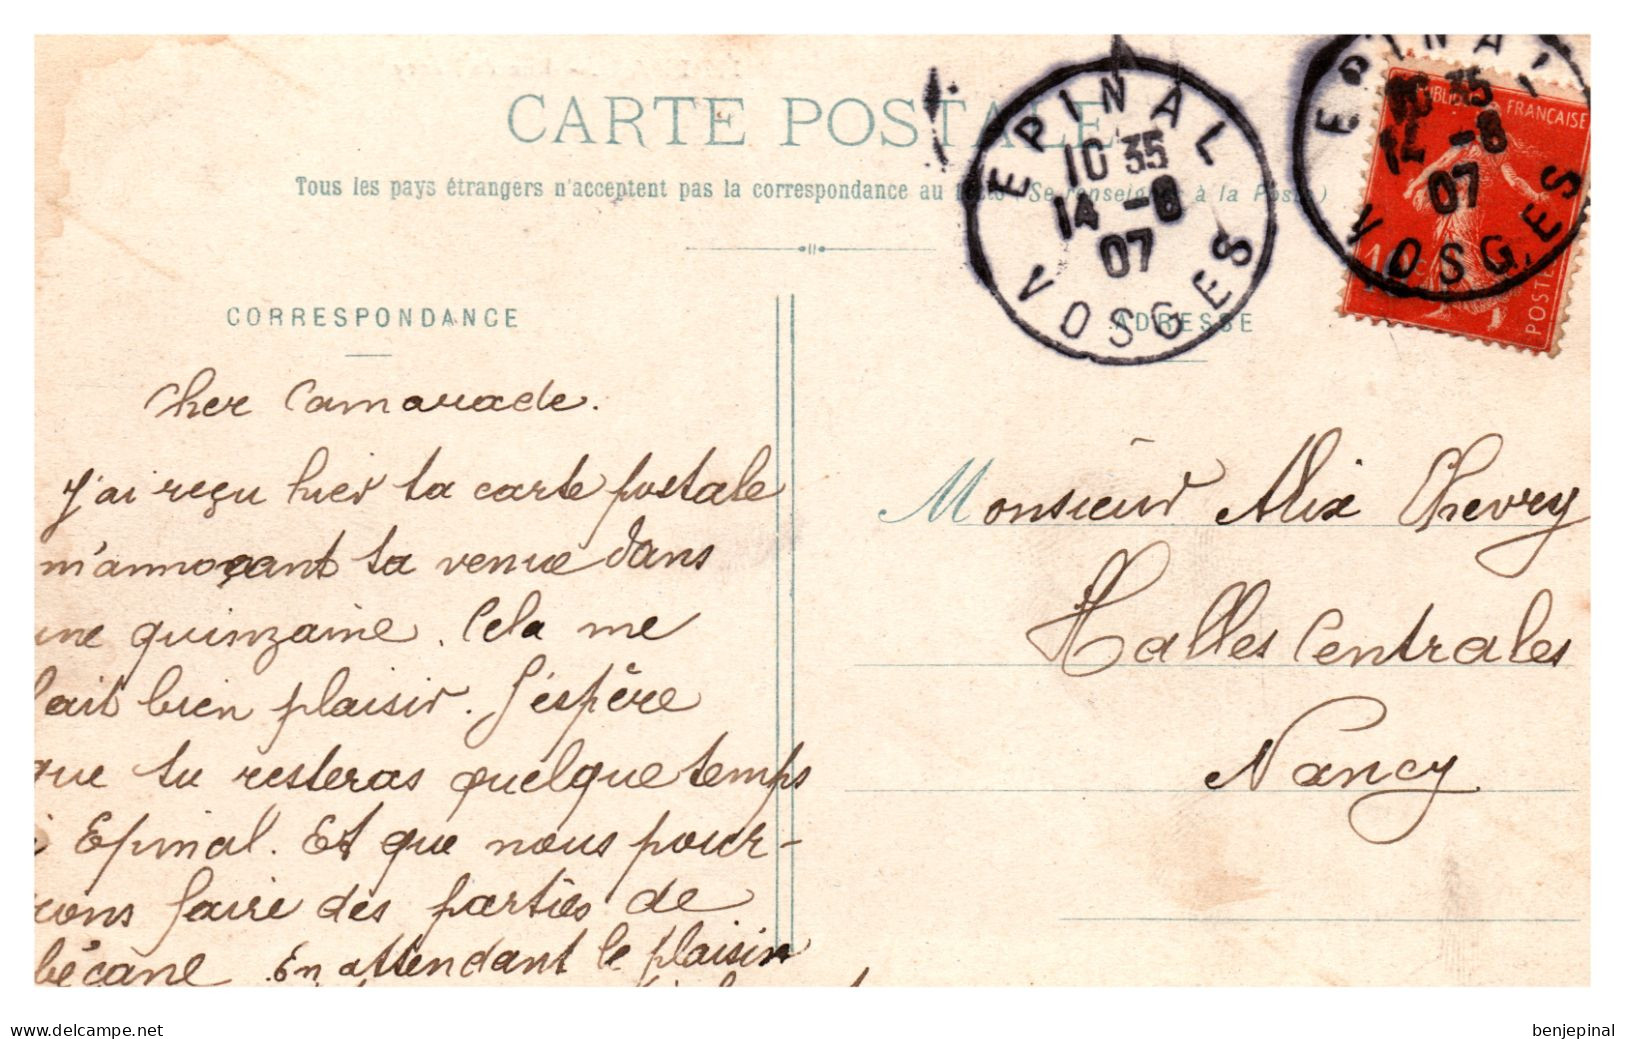 CARTE POSTALE
Tous les pays étrangers n'acceptent pas la correspondance au recto (Se renseigner à la Poste)
EPINAL
10 35
14 -8
07
VOSGES
EPINAL
10 35
14 -8
07
VOSGES
REPUBLIQUE FRANÇAISE
10c
POSTES
CORRESPONDANCE
ADRESSE
Cher Camarade.
J'ai reçu hier ta carte postale
m'annoçant ta venue dans
une quinzaine. Cela me
fait bien plaisir. J'espère
que tu resteras quelque temps
à Epinal. Et que nous pour-
rons faire des parties de
bécane. En attendant le plaisir
Monsieur Alix Chevry
Halles Centrales
Nancy
www.delcampe.net
benjepinal